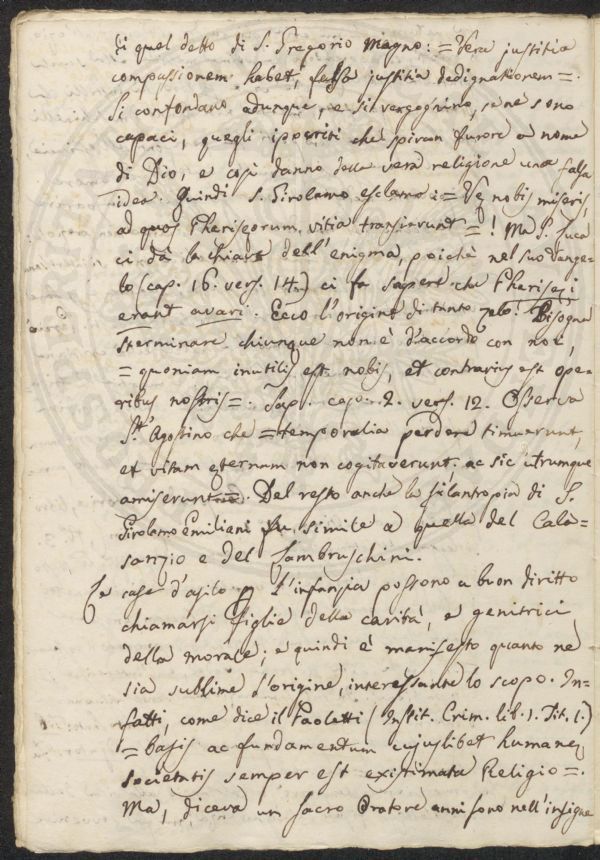 di quel detto di S. Gregorio Magno: = Vera justitia
compassionem habet, falsa justitia dedignationem =.
Si confondano adunque, e si vergognino, se ne sono
capaci, quegli ippocriti che spiran furore a nome
di Dio, e così danno della vera religione una falsa
idea. Quindi S. Girolamo esclama: = Vę nobis miseris,
ad quos Pharisęorum vitia transierunt = ! Ma S. Luca
ci dà la chiave dell'enigma, poichè nel suo Vange=
lo (cap. 16. vers. 14.) ci fa sapere che Pharisęi
erant avari. Ecco l'origine di tanto zelo! Bisogna
sterminare chiunque non è d'accordo con noi,
= quoniam inutilis est nobis, et contrarius est ope=
ribus nostris =. Sap. cap. 2. vers. 12. Osserva
St. Agostino che = temporalia perdere timuerunt,
et vitam ęternam non cogitaverunt. ac sic utrumque
amiserunt =. Del resto anche la filantropia di S.
Girolamo Emiliani fu simile a quella del Cala=
sanzio e del Lambruschini.
Le case d'asilo p l'infanzia possono a buon diritto
chiamarsi figlie della carità, e genitrici
della morale; e quindi è manifesto quanto ne
sia sublime l'origine, interessante lo scopo. In=
fatti, come dice il Paoletti (Instit. Crim. lib. 1. Tit. 1.)
= basis ac fundamentum cujuslibet humanę
societatis semper est existimata Religio =.
Ma, diceva un sacro Oratore anni sono nell'insigne